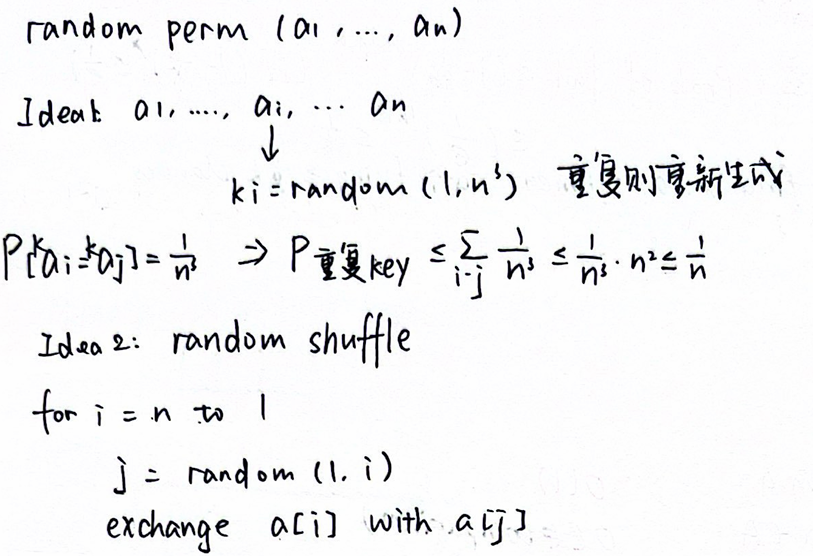 random perm (a1, ..., an)
Idea1: a1, ...., ai, ... an
↓
ki = random (1, n³) 重复则重新生成
P[kai = kaj] = 1/n³ ⇒ P重复key ≤ Σi-j 1/n³ ≤ 1/n³ · n² ≤ 1/n
Idea 2: random shuffle
for i = n to 1
j = random (1. i)
exchange a[i] with a[j]